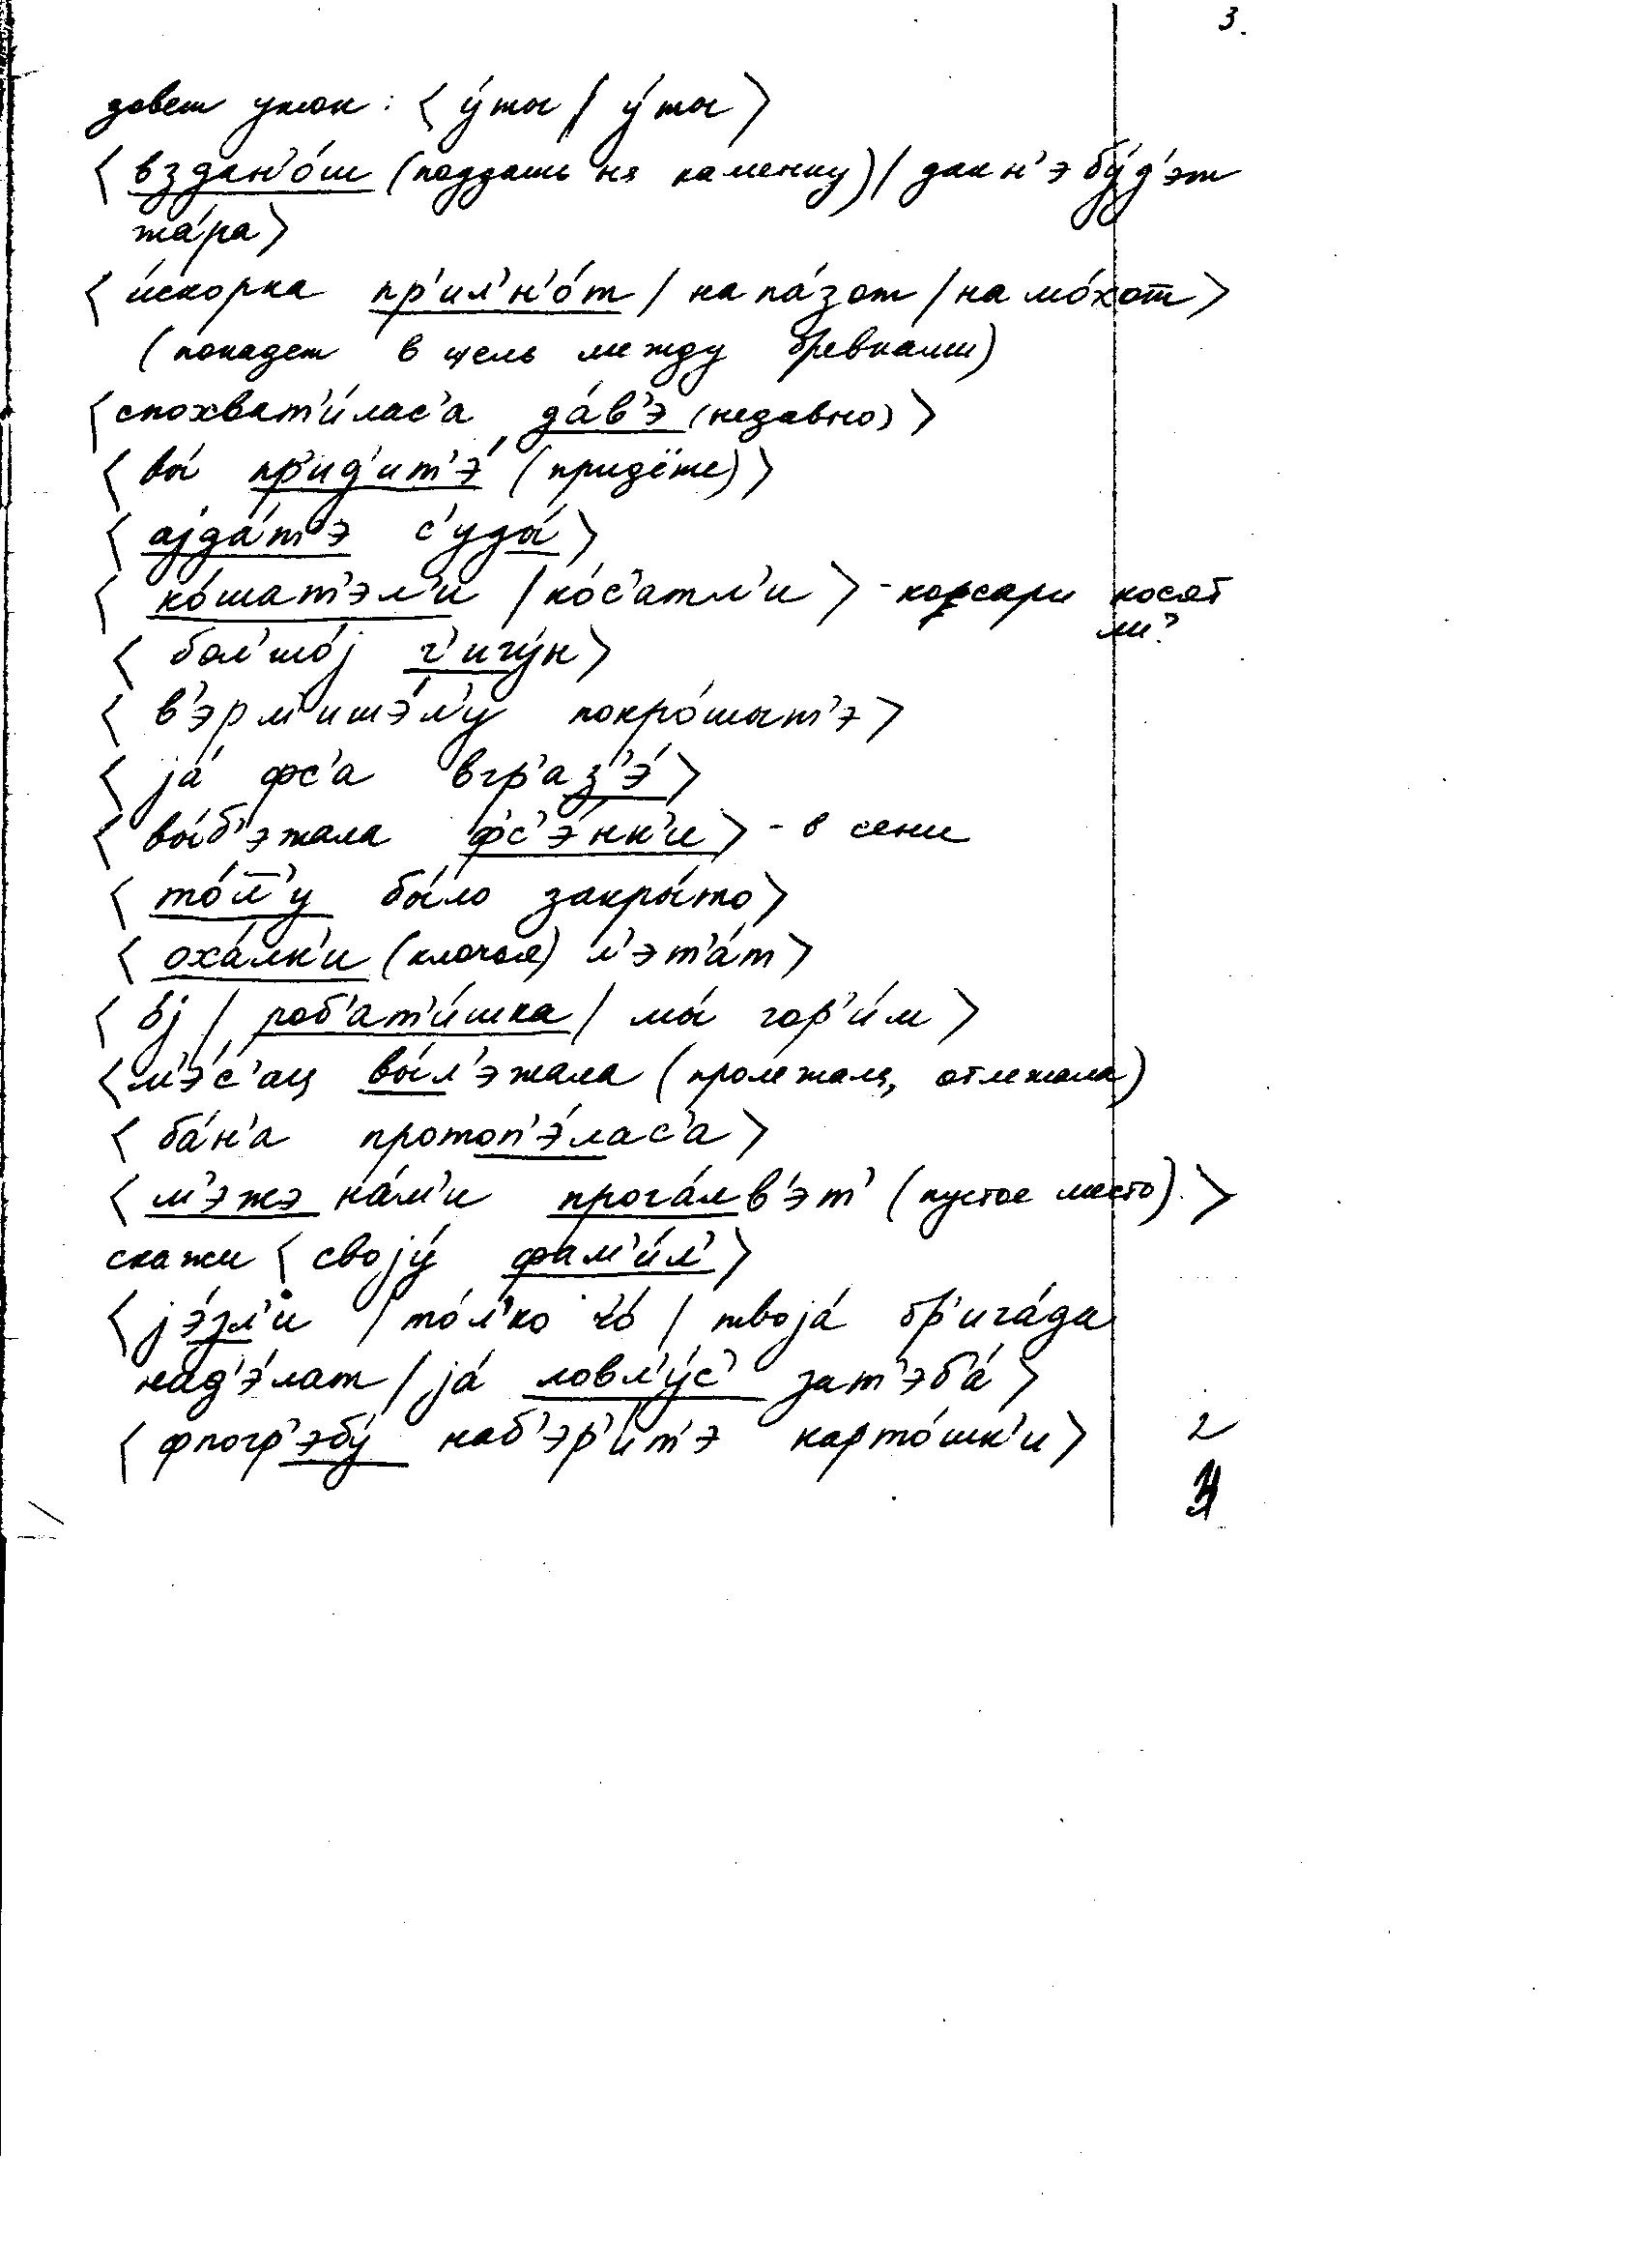 3.
зовет уток: ⟨ у́ты / у́ты ⟩
⟨ вздан'о́ш (поддашь на каменку) / дак н'э бу́д'эт
жа́ра⟩
⟨ и́скорка пр'ил'н'о́т / на па́зот / на мо́хот ⟩
(попадет в щель между бревнами)
⟨спохват'и́лас'а да́в'э (недавно)⟩
⟨ вы́ пр'ид'ит'э́ (придёте)⟩
⟨ ајда́т'э с'уды́⟩
⟨ ко́шат'эл'и / ко́с'атл'и ⟩ - косари косят
ли?
⟨ бол'шо́ј ч'игу́н⟩
⟨ в'эрм'ишэ́л'у покро́шыт'э⟩
⟨ ја́ фс'а вгр'аз'э́⟩
⟨ вы́б'эжала фс'э́нк'и⟩ - в сени
⟨ то́л'у бы́ло закры́то⟩
⟨ оха́лк'и (клочья) л'эт'а́т⟩
⟨ о́ј / роб'ат'и́шка / мы́ гор'и́м ⟩
⟨м'э́с'ац вы́л'эжала (пролежала, отлежала)
⟨ ба́н'а протоп'э́лас'а⟩
⟨ м'эжэ на́м'и прога́лв'эт' (пустое место). ⟩
скажи ⟨ своју́ фам'и́л'⟩
⟨јэ́зл'и / то́л'ко чо́ / твоја́ бр'ига́да
над'э́лат / ја́ ловл'у́с' зат'эб'а́ ⟩
⟨ фпогр'эбу́ наб'эр'и́т'э карто́шк'и⟩
2